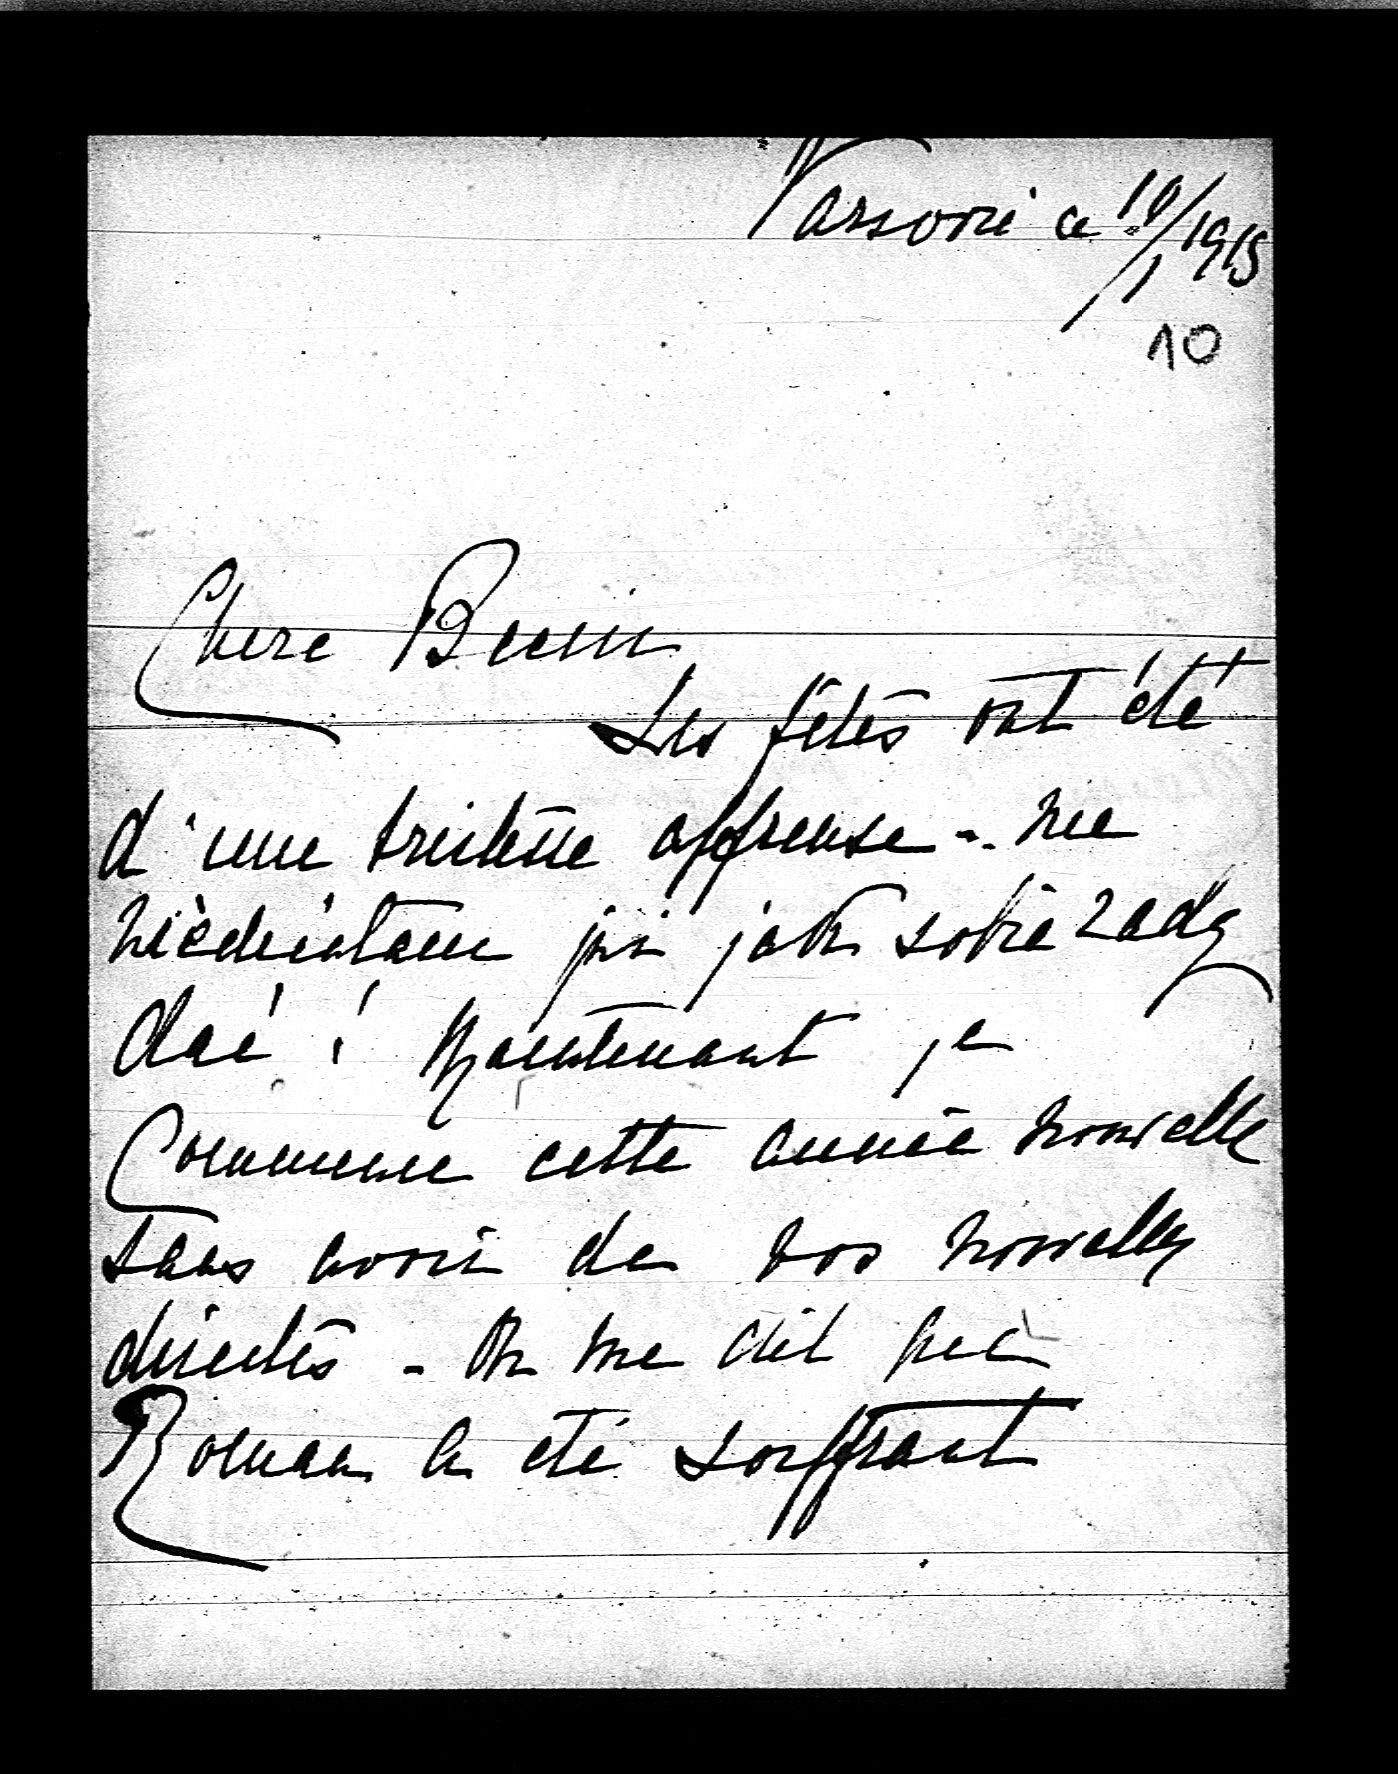 Varsovie ce 10/1 1915
10
Chere Bicin
Les fêtes ont été
d'une tristesse affreuse - nie
wiedziałam już jak sobie radę
dać! Maintenant je
Commence cette année nouvelle
sans avoir de vos nouvelles
directes - On me dit que
Roman a été souffrant